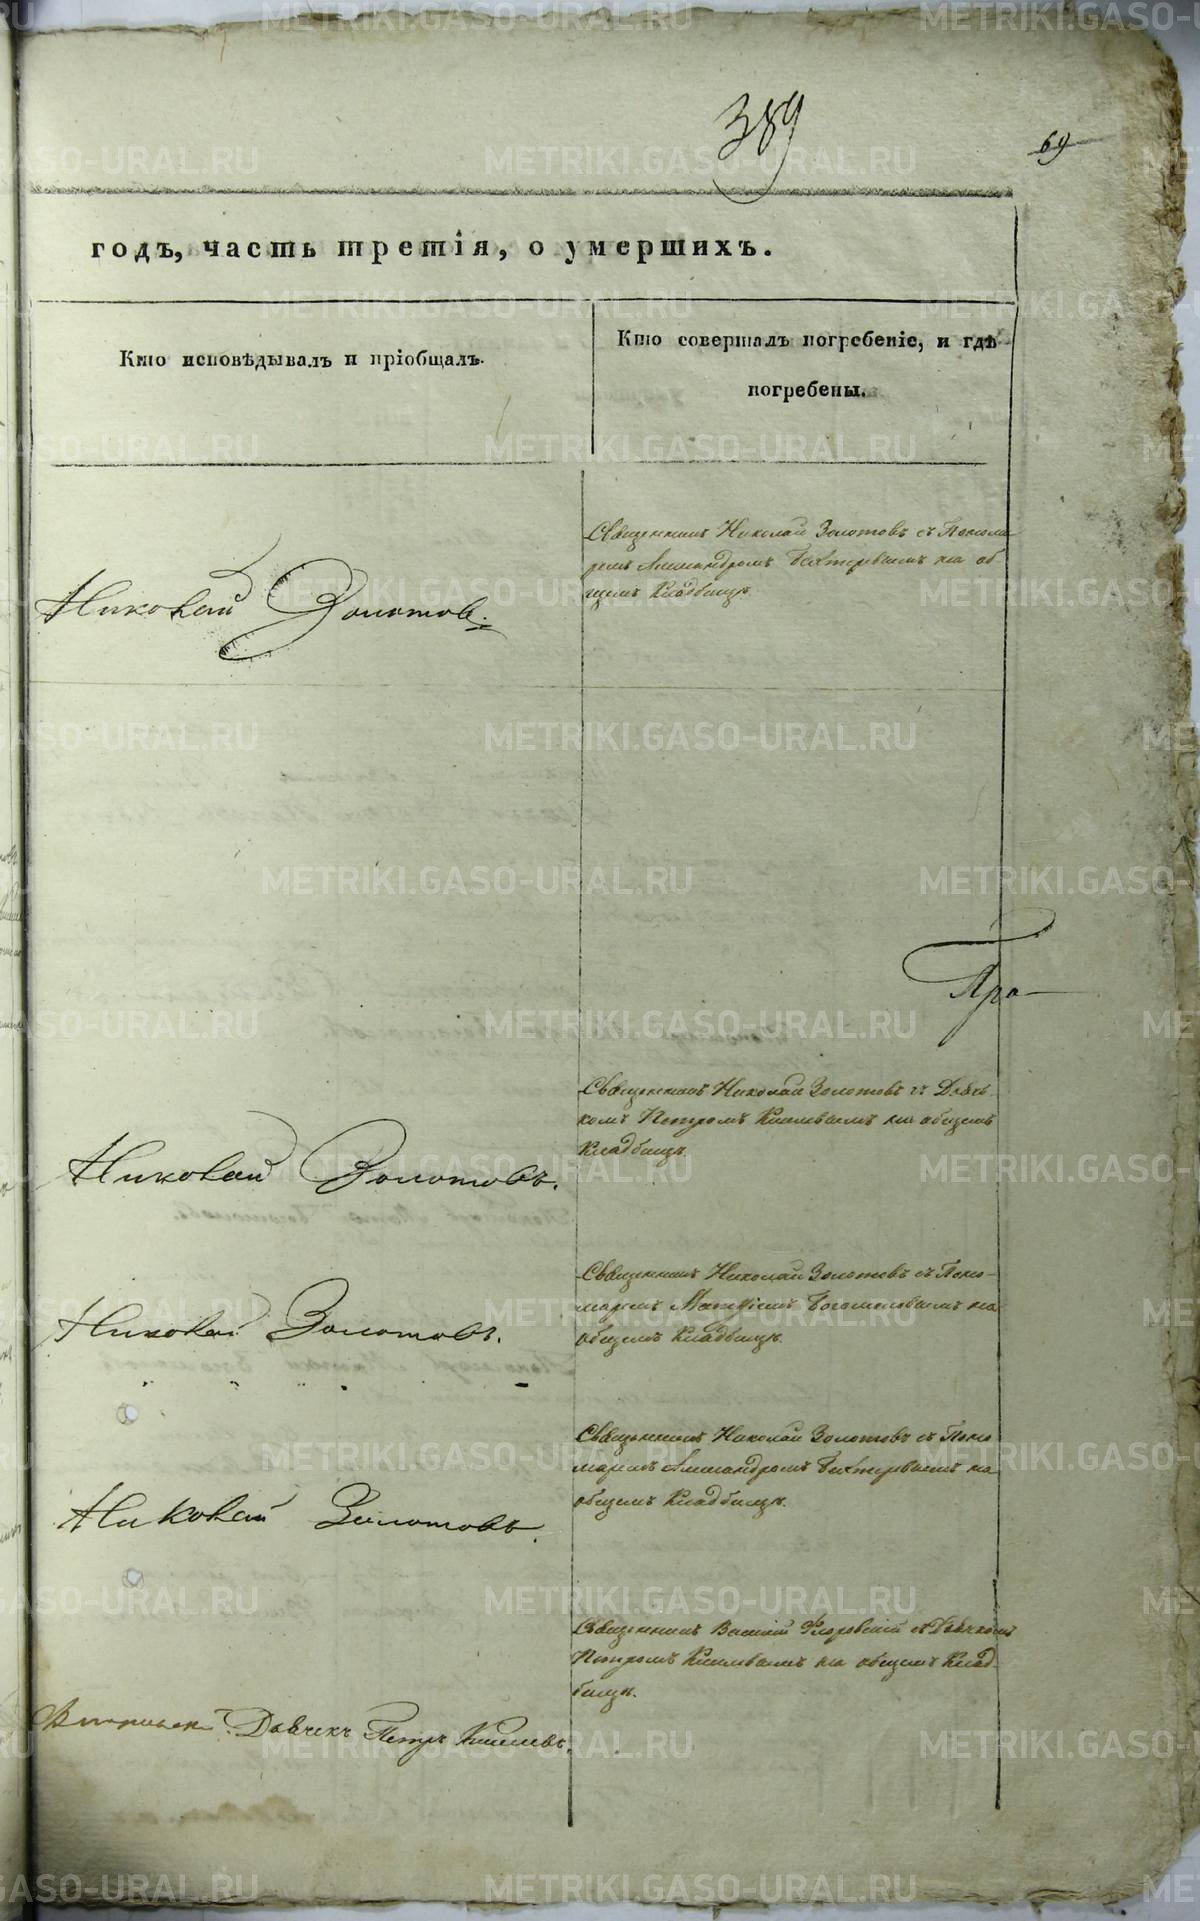 389
69
годъ, часть третія, о умершихъ.
Кто исповѣдывалъ и пріобщалъ.
Кто совершалъ погребеніе, и гдѣ
погребены.
Священникъ Николай Золотовъ съ Понома
ремъ Александромъ Бехтеревымъ на об
щемъ Кладбищѣ.
Николай Золотов.
Пра
Священникъ Николай Золотовъ съ Дьяч
комъ Петромъ на общемъ
Кладбищѣ.
Николай Золотовъ.
Священникъ Николай Золотовъ съ Поно
маремъ Матфіемъ Богомоловымъ на
общемъ Кладбищѣ.
Николай Золотовъ.
Священникъ Николай Золотовъ съ Поно
маремъ Александромъ Бехтеревымъ на
общемъ Кладбищѣ.
Николай Золотовъ.
Священникъ Флоровскій съ Дьячкомъ
Петромъ на общемъ Клад
бищѣ.
Дьячекъ Петръ
METRIKI.GASO-URAL.RU